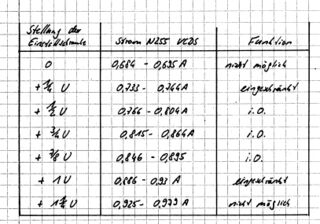 Stellung der
Einstellschraube Strom N255 VCDS Funktion
0 0,684 - 0,695 A nicht möglich
+ ¼ U 0,733 - 0,744 A eingeschränkt
+ ½ U 0,766 - 0,804 A i.O.
+ ¾ U 0,815 - 0,864 A i.O.
0,846 - 0,895 i.O.
+ 1 U 0,886 - 0,93 A eingeschränkt
0,925 - 0,973 A nicht möglich